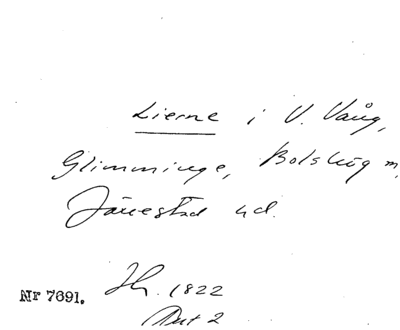 Lierne i V. Vång,
Glimminge, Bolshög m,
Järrestad hd.
Nr 7691.
Jh. 1822
Akt 2